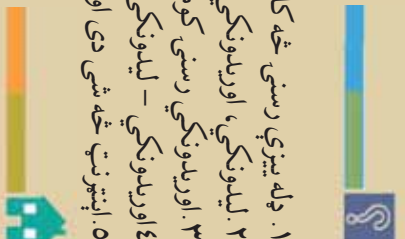 ۱. ډله ییزې رسنۍ څه کا
۲. لیدونکي، اوریدونکي
۳. اوریدونکي رسنۍ کوم
۴. اوریدونکي – لیدونکي
۵. انټرنټ څه شی دی او